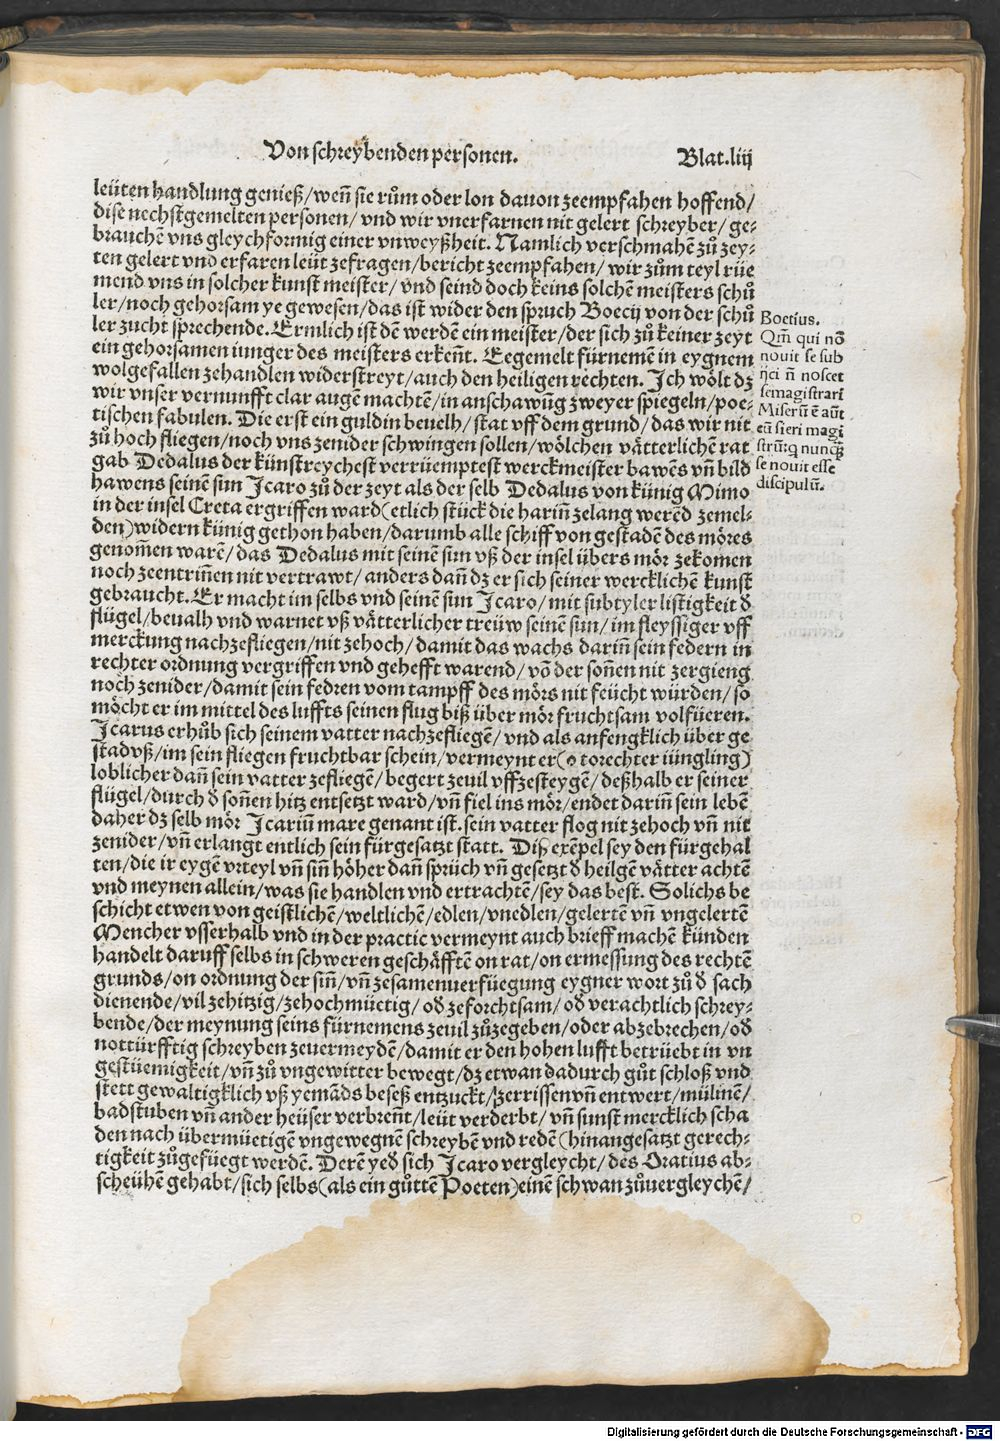 Von schreybenden personen.
Blat.liij
leüten handlung genieß/weñ sie rům oder lon dauon zeempfahen hoffend/
dise nechstgemelten personen/ vnd wir vnerfarnen nit gelert schreyber/ ge⸗
brauchē vns gleychformig einer vnweyßheit. Namlich verschmahē zů zey⸗
ten gelert vnd erfaren leüt zefragen/bericht zeempfahen/ wir zům teyl rüe
mend vns in solcher kunst meister/ vnd seind doch keins solchē meisters schů
ler/noch gehorsam ye gewesen/das ist wider den spruch Boecij von der schů
ler zucht sprechende. Ermlich ist dē werdē ein meister/der sich zů keiner zeyt
ein gehorsamen iunger des meisters erkeñt. Eegemelt fürnemē in eygnem
wolgefallen zehandlen widerstreyt/auch den heiligen rechten. Ich wölt dz
wir vnser vernunfft clar augē machtē/in anschawūg zweyer spiegeln/poe⸗
tischen fabulen. Die erst ein guldin beuelh/stat vff dem grund/das wir nit
zů hoch fliegen/noch vns zenider schwingen sollen/wölchen vätterlichē rat
gab Dedalus der künstreychest verrüemptest werckmeister bawēs vñ bild
hawens seinē sun Icaro zů der zeyt als der selb Dedalus von künig Mimo
in der insel Creta ergriffen ward(etlich stück die hariñ zelang werēd zemel⸗
den)widern künig gethon haben/darumb alle schiff von gestadē des möres
genom̄en warē/das Dedalus mit seinē sun vß der insel übers mör zekomen
noch zeentriñen nit vertrawt/ anders dañ dz er sich seiner wercklichē kunst
gebraucht. Er macht im selbs vnd seinē sun Icaro/ mit subtyler listigkeit d̄
flügel/beualh vnd warnet vß vätterlicher treüw seinē sun/ im fleyssiger vff
merckung nachzefliegen/nit zehoch/damit das wachs dariñ sein federn in
rechter ordnung vergriffen vnd gehefft warend/ vō der soñen nit zergieng
noch zenider/damit sein fedren vom tampff des mörs nit feücht würden/so
möcht er im mittel des luffts seinen flug biß über mör fruchtsam volfüeren.
Icarus erhůb sich seinem vatter nachzefliegē/ vnd als anfengklich über ge
stad vß/im sein fliegen fruchtbar schein/vermeynt er(o torechter iüngling)
loblicher dañ sein vatter zefliegē/ begert zeuil vffzesteygē/deßhalb er seiner
flügel/durch d̄ soñen hitz entsetzt ward/vñ fiel ins mör/endet dariñ sein lebē
daher dz selb mör Icariū mare genant ist. sein vatter flog nit zehoch vñ nit
zenider/vñ erlangt entlich sein fürgesatzt statt. Diß exēpel sey den fürgehal
ten/die ir eygē vrteyl vñ siñ höher dañ sprüch vñ gesetzt d̄ heilgē vätter achtē
vnd meynen allein/was sie handlen vnd ertrachtē/sey das best. Solichs be
schicht etwen von geistlichē/weltlichē/edlen/vnedlen/gelertē vñ vngelertē
Mencher vsserhalb vnd in der practic vermeynt auch brieff machē künden
handelt daruff selbs in schweren geschäfftē on rat/on ermessung des rechtē
grunds/on ordnung der siñ/vñ zesamenuerfüegung eygner wort zů d̄ sach
dienende/vil zehitzig/zehochmüetig/ od̄ zeforchtsam/od̄ verachtlich schrey⸗
bende/der meynung seins fürnemens zeuil zůzegeben/oder abzebrechen/od̄
nottürfftig schreyben zeuermeydē/damit er den hohen lufft betrüebt in vn
gestüemigkeit/vñ zů vngewitter bewegt/dz etwan dadurch gůt schloß vnd
stett gewaltigklich vß yemāds beseß entzuckt/zerrissen vñ entwert/mülinē/
badstuben vñ ander heüser verbreñt/leüt verderbt/vñ sunst mercklich scha
den nach übermüetigē vngewegnē schreybē vnd redē(hinangesatzt gerech⸗
tigkeit zůgefüegt werdē. Derē yed̄ sich Icaro vergleycht/des Oratius ab⸗
scheühē gehabt/sich selbs(als ein gůttē Poeten)einē schwan zůuergleychē/
Boetius.
Qm̄ qui nō
nouit se sub
ijci n̄ noscet
semagistrari
Miserū ē aūt
eū fieri magi
strū:q nunq̄
se nouit esse
discipulū.
Digitalisierung gefördert durch die Deutsche Forschungsgemeinschaft - DFG